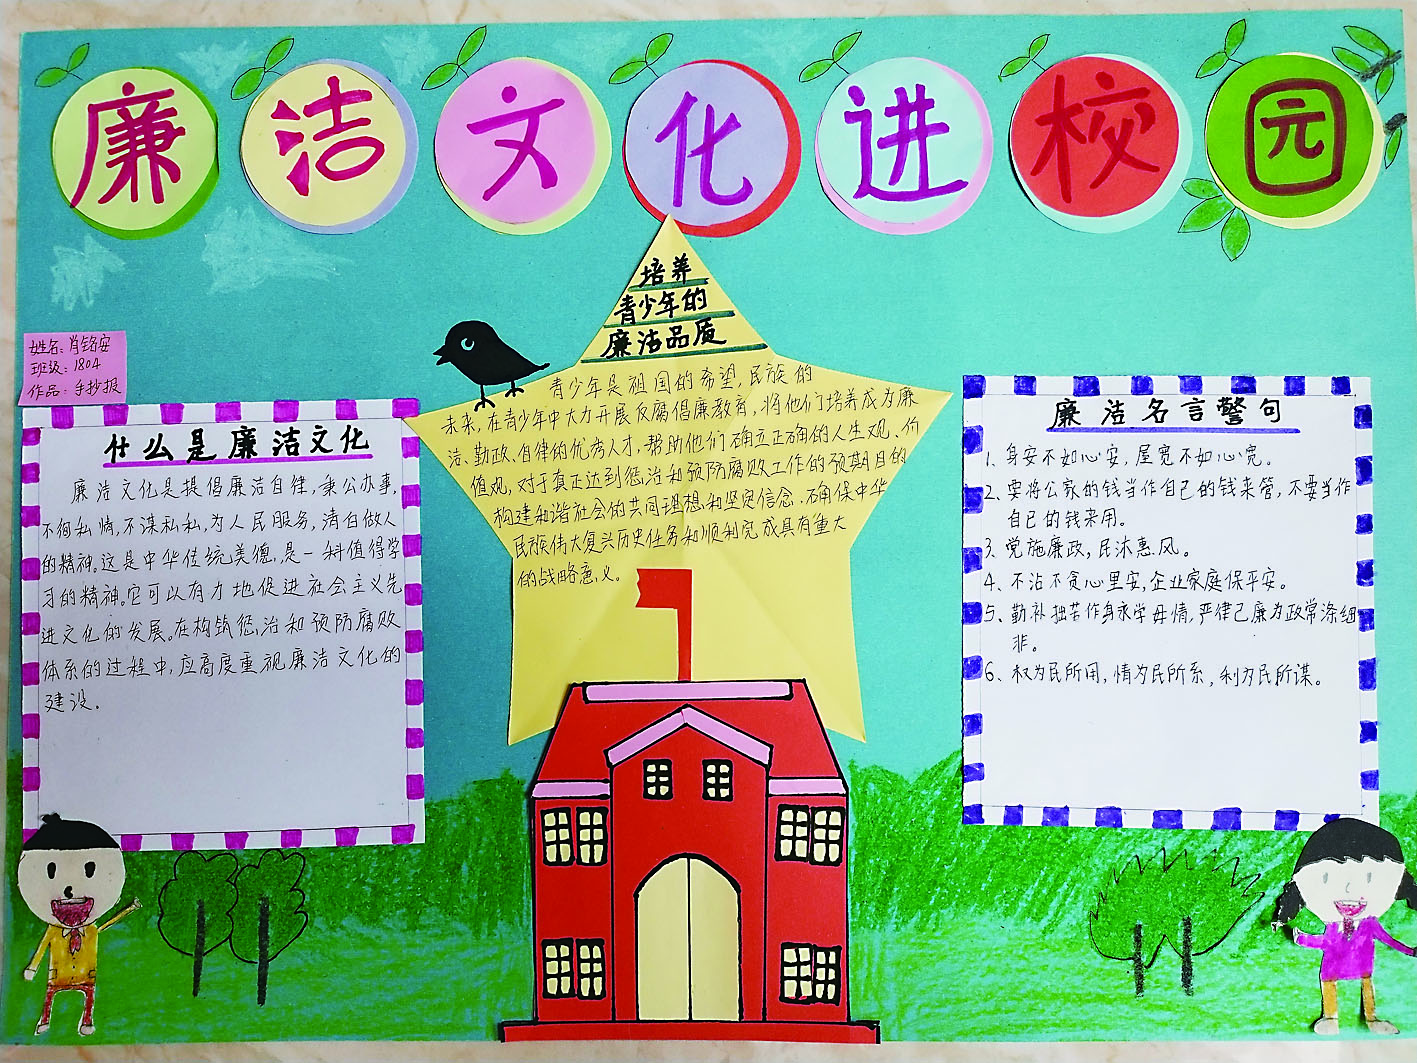 廉洁文化进校园
姓名：肖铭安
班级：1804
作品：手抄报
培养
青少年的
廉洁品质
青少年是祖国的希望，民族的
未来，在青少年中大力开展反腐倡廉教育，将他们培养成为廉
洁、勤政、自律的优秀人才，帮助他们确立正确的人生观、价
值观，对于真正达到惩治和预防腐败工作的预期目的
构建和谐社会的共同理想和坚定信念、确保中华
民族伟大复兴历史任务和顺利完成具有重大
的战略意义。
什么是廉洁文化
廉洁文化是提倡廉洁自律，秉公办事，
不徇私情，不谋私利，为人民服务，清白做人
的精神。这是中华传统美德，是一种值得学
习的精神。它可以有力地促进社会主义先
进文化的发展。在构筑惩治和预防腐败
体系的过程中，应高度重视廉洁文化的
建设。
廉洁名言警句
1、身安不如心安，屋宽不如心宽。
2、要将公家的钱当作自己的钱来管，不要当作
自己的钱来用。
3、党施廉政，民沐惠风。
4、不沾不贪心里安，企业家庭保平安。
5、勤补拙苦作身永学毋情，严律己廉为政常涤细
非。
6、权为民所用，情为民所系，利为民所谋。